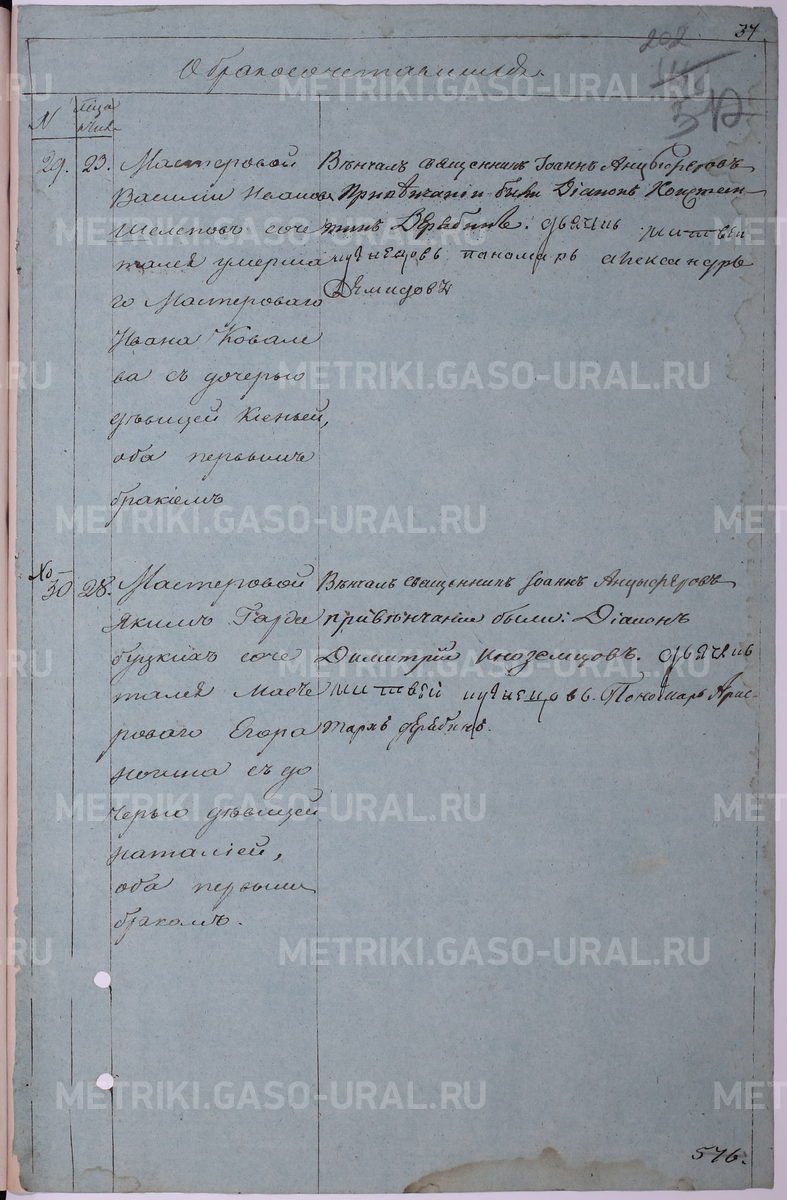 37.
202
О бракосочетавшихся.
N
29. 23. Мастеровой
Василий Иванов
Шелепов соче
тался умерша
го Мастероваго
Ивана Ковале
ва съ дочерью
девицей Ксеньей,
оба первымъ
бракомъ
Венчалъ священникъ Іоаннъ Анцыферовъ
При венчаніи были Діаконъ Констан
тинъ Дерябинъ. дьячекъ матвей
кузнецовъ пономарь александръ
Демидовъ
№
30 28. Мастеровой
Якимъ
соче
тался Масте
роваго Егора
съ до
черью девицей
наталіей,
оба первымъ
бракомъ.
Венчалъ священникъ Іоаннъ Анцыферовъ
при венчаніи были: Діаконъ
Димитрій иноземцовъ. дьячекъ
матвей кузнецовъ. Пономарь Арис-
тархъ дерябинъ.
576.
METRIKI.GASO-URAL.RU